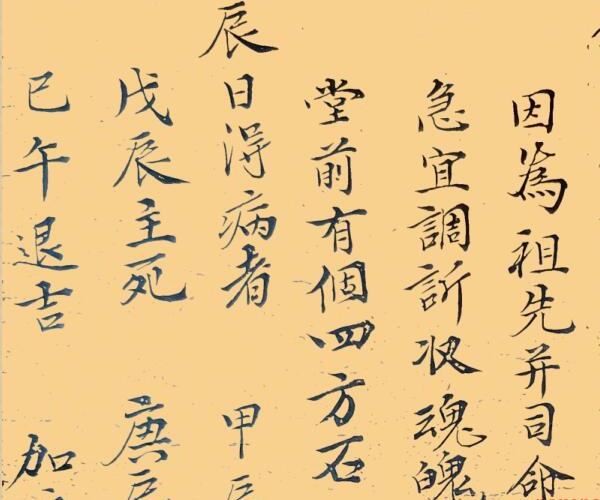 因為祖先并司命
急宜調訴收魂魄
堂前有個四方石
辰日得病者 甲辰
戊辰主死 庚辰
巳午退吉 加